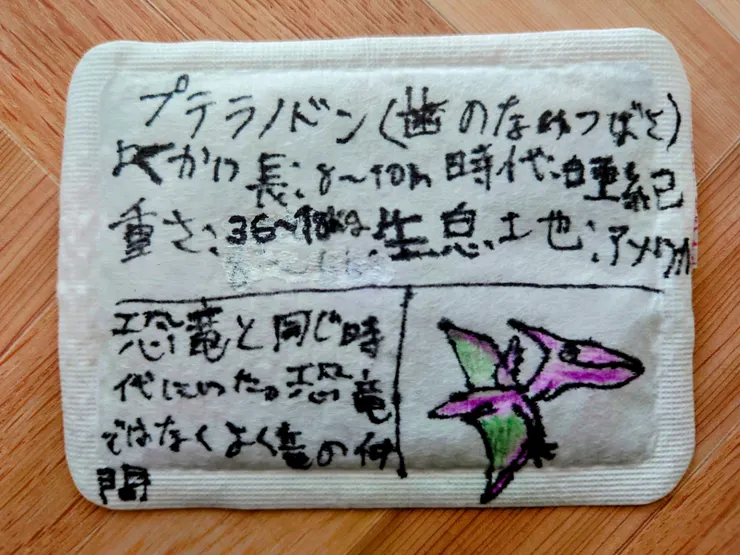 プテラノドン(歯のないつばさ)
よくかい長:8〜10m 時代:白亜紀
重さ:36〜18kg 生息土也:アメリカ
恐竜と同じ時
代にいた。恐竜
ではなくよく竜の仲
間